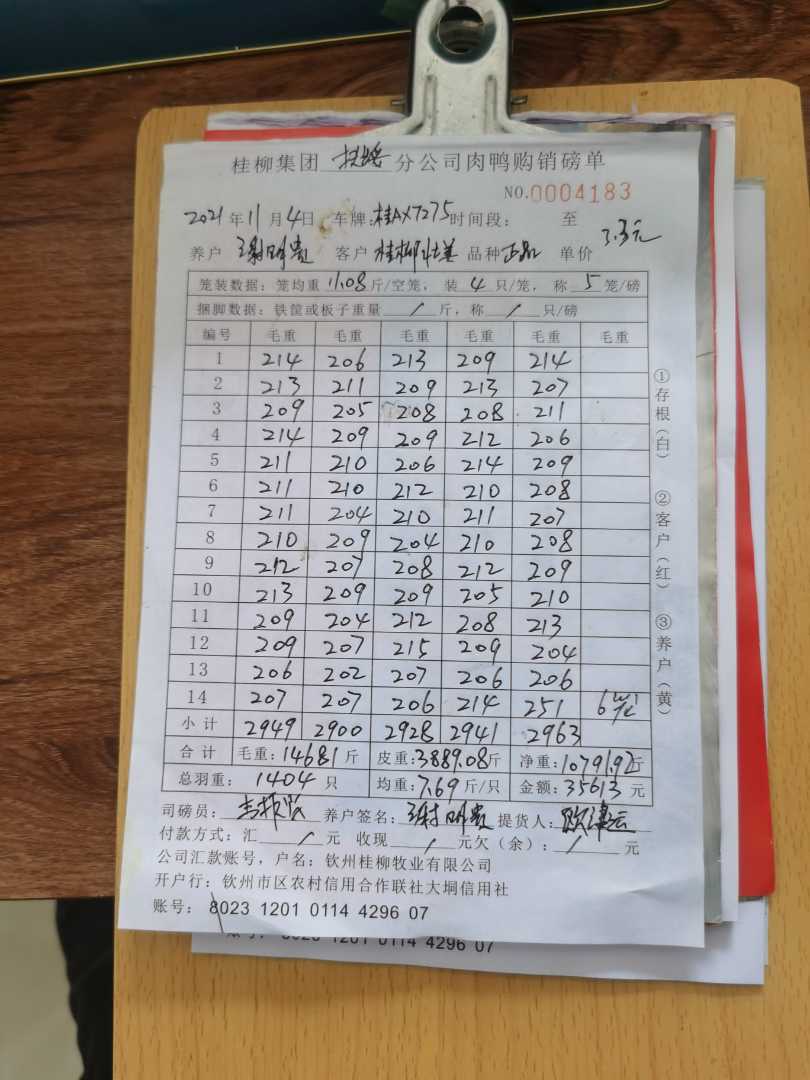 桂柳集团 分公司肉鸭购销磅单
NO.0004183
2021年11月4日 车牌:桂AX7275 时间段: 至
养户 谢明贵 客户 桂柳 品种 正品 单价 3.3元
笼装数据:笼均重 11.08 斤/空笼, 装 4 只/笼, 称 5 笼/磅
捆脚数据:铁筐或板子重量 / 斤,称 / 只/磅
编号 毛重 毛重 毛重 毛重 毛重 毛重
1 214 206 213 209 214
2 213 211 209 213 207
3 209 205 208 208 211
4 214 209 209 212 206
5 211 210 206 214 209
6 211 210 212 210 208
7 211 204 210 211 207
8 210 209 204 210 208
9 212 207 208 212 209
10 213 209 209 205 210
11 209 204 212 208 213
12 209 207 215 209 204
13 206 202 207 206 206
14 207 207 206 214 251 6
小计 2949 2900 2928 2941 2963
合计 毛重:14681斤 皮重:3889.08斤 净重:10791.92斤
总羽重: 1404 只 均重:7.69斤/只 金额:35613元
司磅员: 养户签名:谢明贵 提货人:
付款方式:汇 / 元 收现 / 元欠(余): / 元
公司汇款账号,户名:钦州桂柳牧业有限公司
开户行:钦州市区农村信用合作联社大垌信用社
账号: 8023 1201 0114 4296 07
①存根(白) ②客户(红) ③养户(黄)
账号: 8023 1201 0114 4296 07